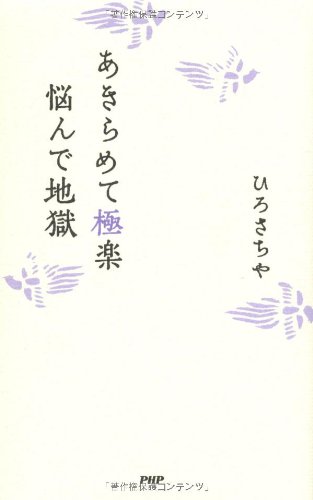 「著作権保護コンテンツ」
あきらめて極楽
悩んで地獄
ひろさちや
PHP
「著作権保護コンテンツ」